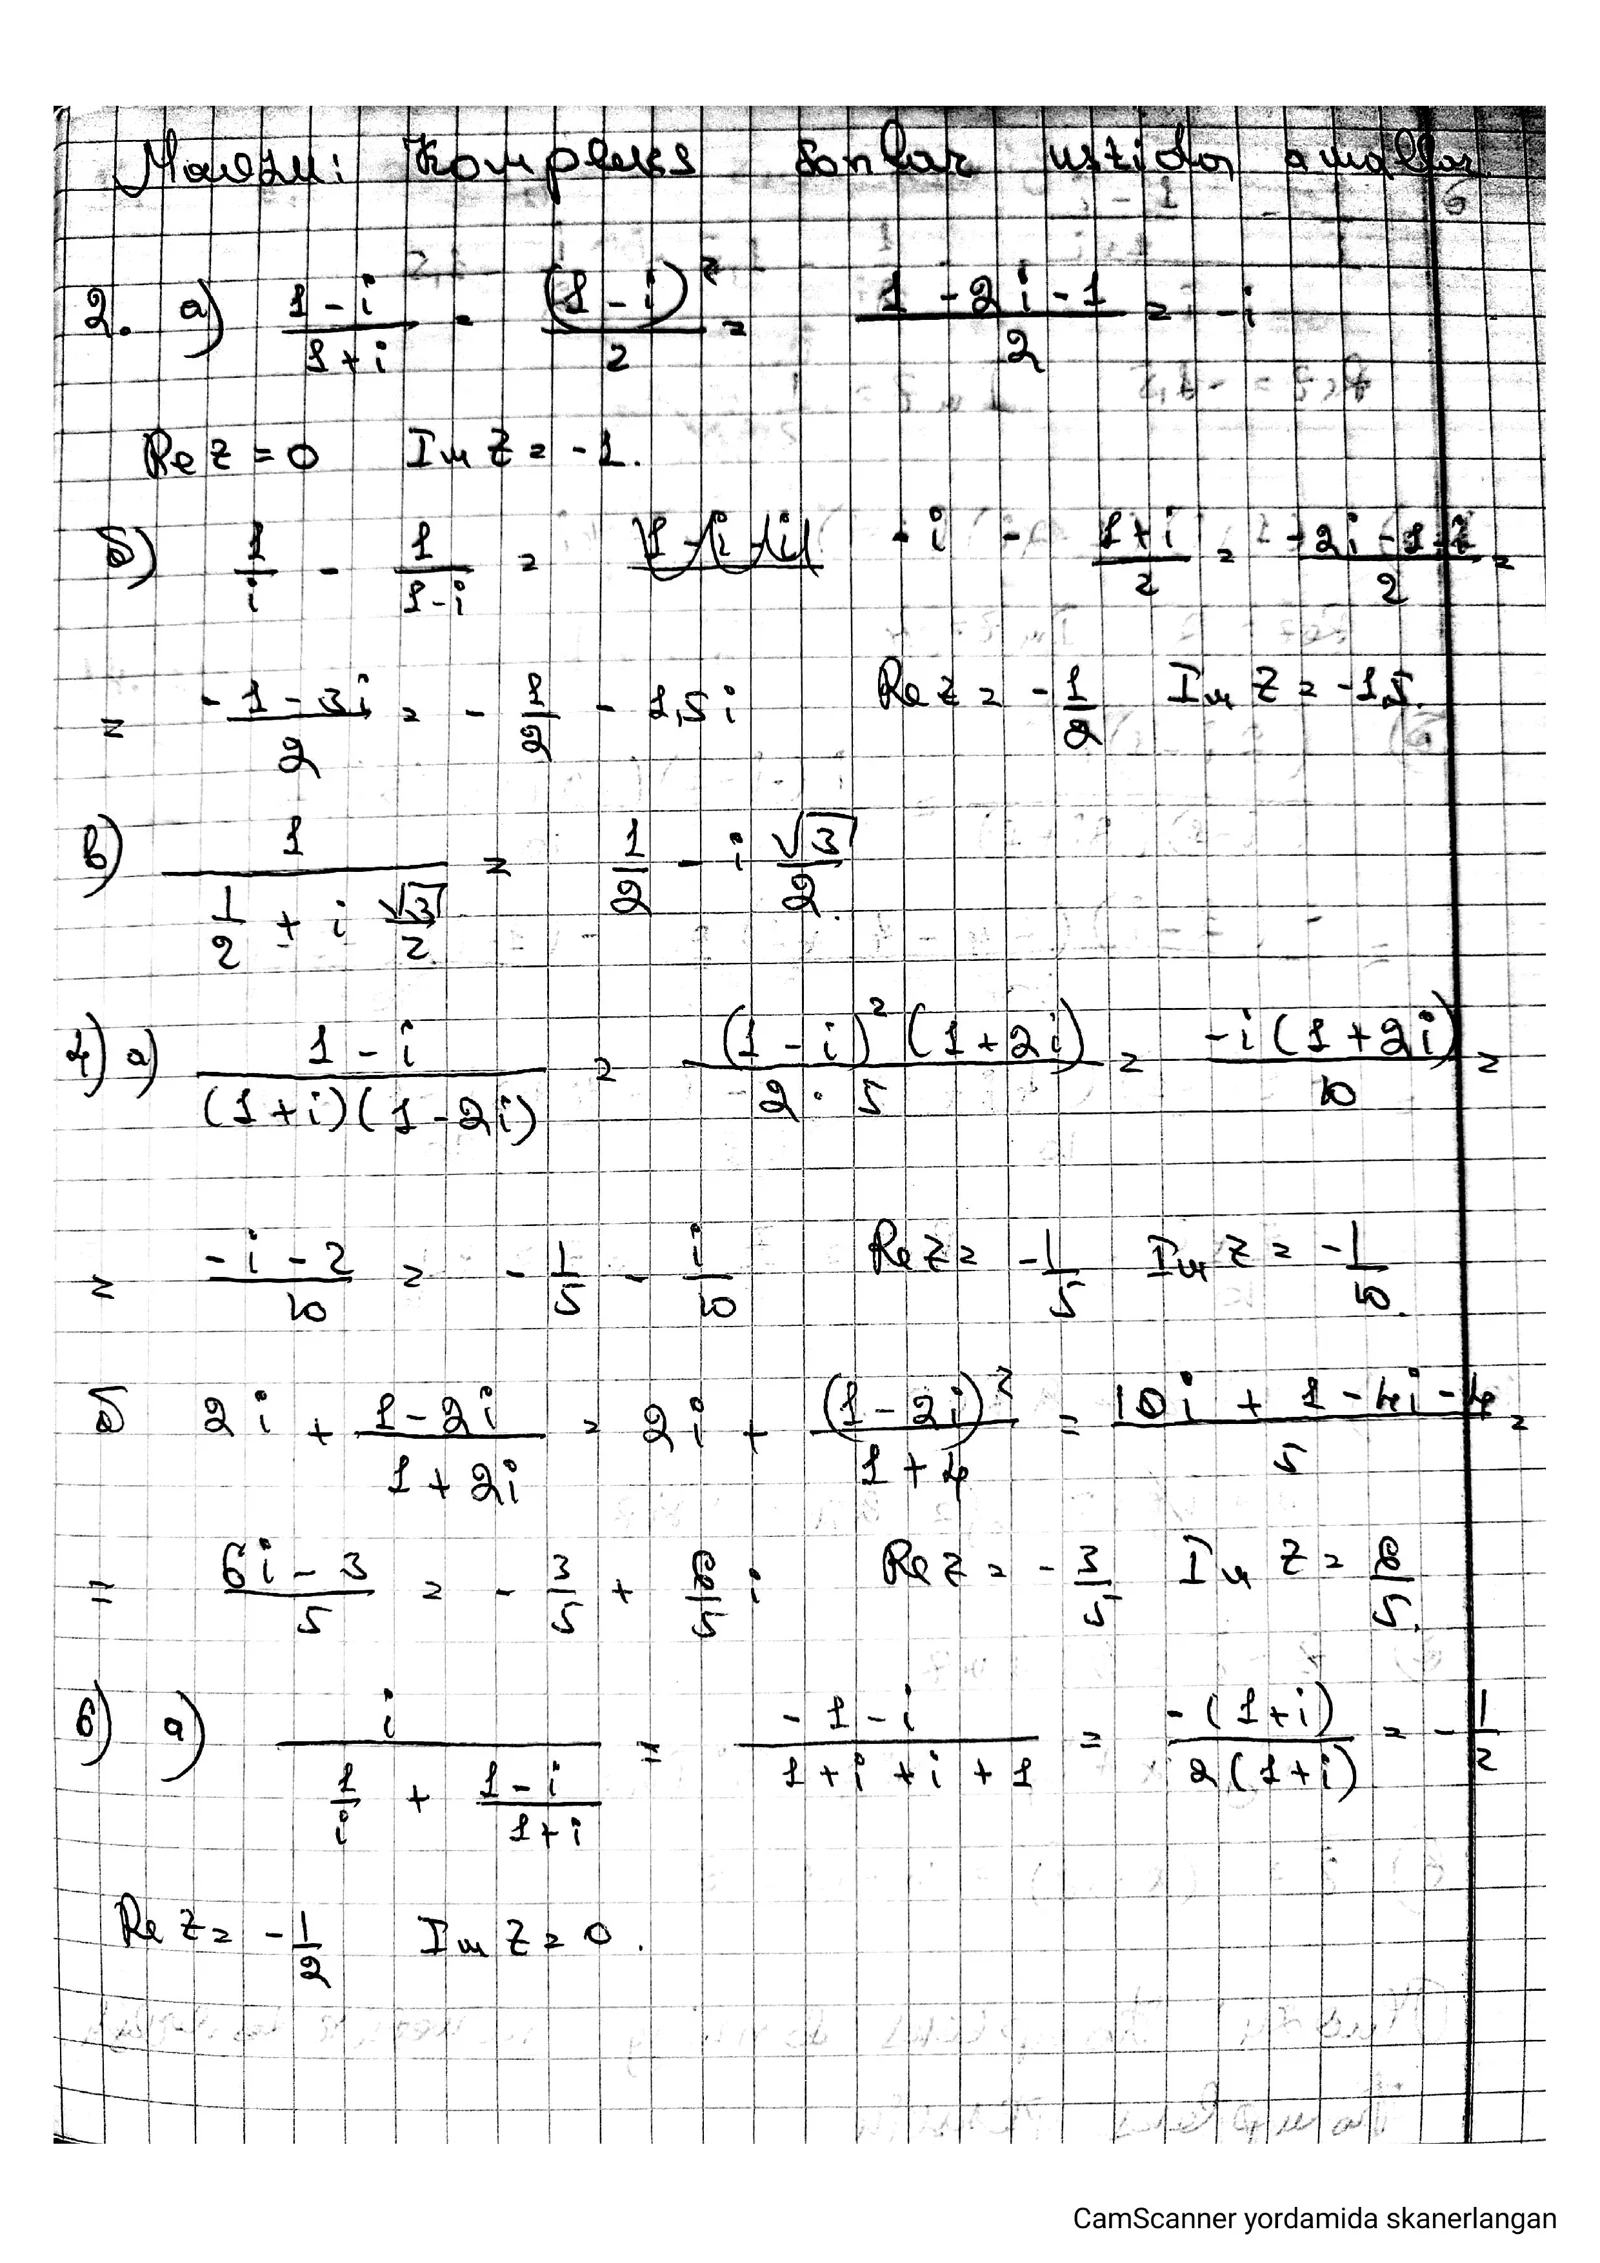 Mavzu: Kompleks sonlar ustida amallar.
2. a) (1-i)/(1+i) = (1-i)²/2 = (1-2i-1)/2 = -i
Re z = 0 Im z = -1.
б) 1/i - 1/(1-i) = -i - (1+i)/2 = (-2i-1-i)/2 =
= (-1-3i)/2 = -1/2 - 1,5i Re z = -1/2 Im z = -1,5.
в) 1/(1/2 + i √3/2) = 1/2 - i √3/2.
4) a) (1-i)/((1+i)(1-2i)) = (1-i)²(1+2i)/(2·5) = -i(1+2i)/10 =
= (-i-2)/10 = -1/5 - i/10 Re z = -1/5 Im z = -1/10.
б 2i + (1-2i)/(1+2i) = 2i + (1-2i)²/(1+4) = (10i+1-4i-4)/5 =
= (6i-3)/5 = -3/5 + 6/5 i Re z = -3/5 Im z = 6/5.
6) a) i/(1/i + (1-i)/(1+i)) = (-1-i)/(1+i+i+1) = -(1+i)/(2(1+i)) = -1/2
Re z = -1/2 Im z = 0.
CamScanner yordamida skanerlangan